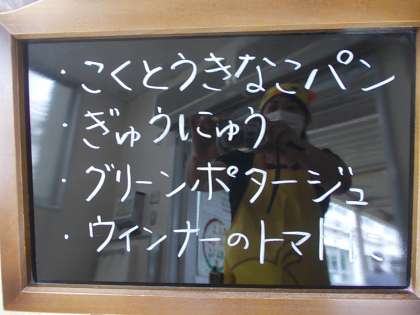 ・こくとうきなこパン
・ぎゅうにゅう
・グリーンポタージュ
・ウィンナーのトマト